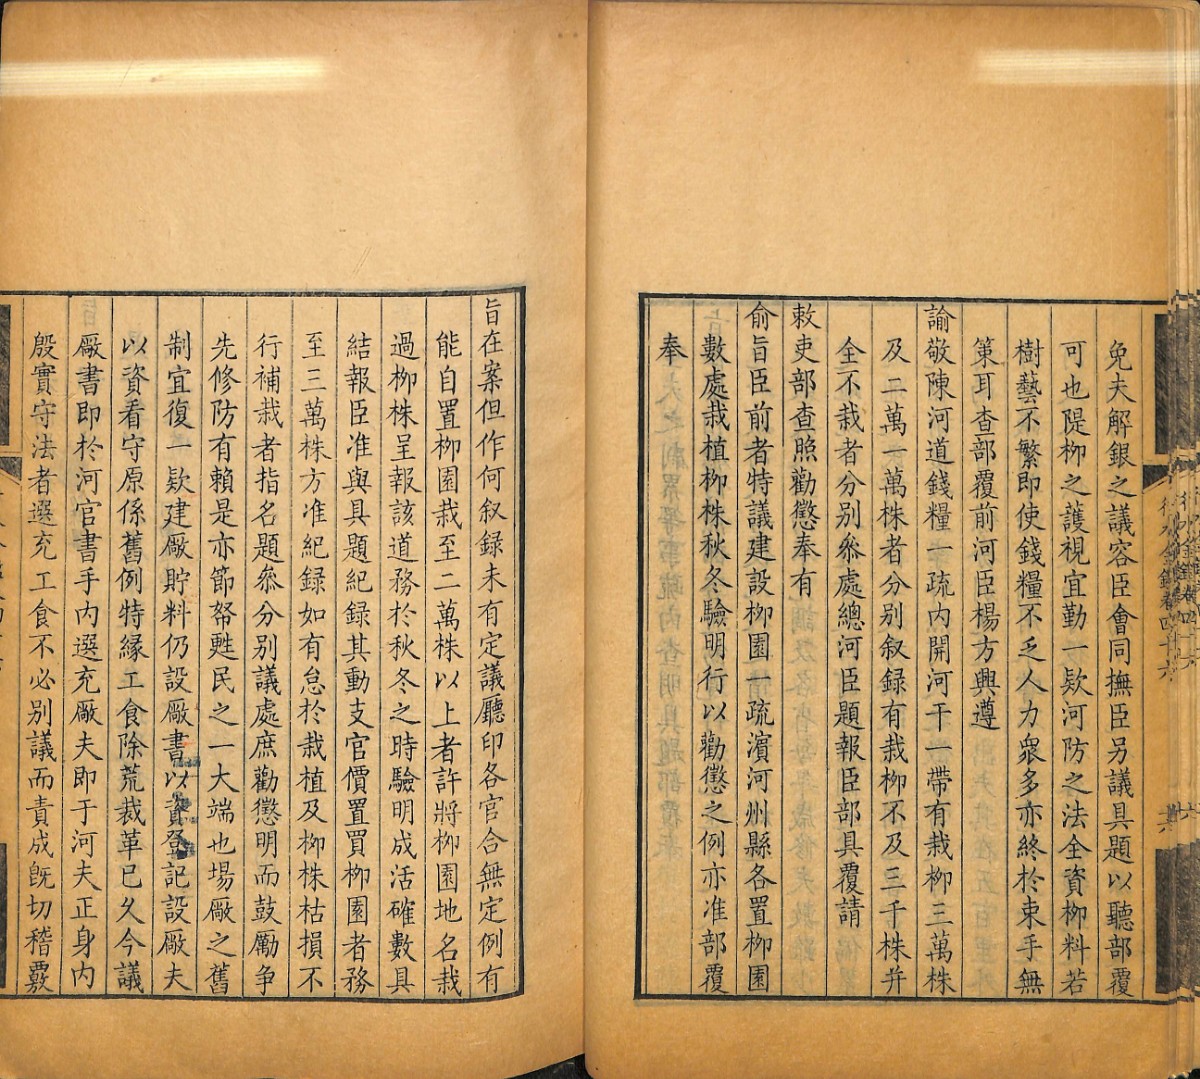 免夫解銀之議容臣會同撫臣另議具題以聽部覆
可也隄柳之護視宜勤一欵河防之法全資柳料若
樹藝不繁即使錢糧不乏人力衆多亦終於束手無
策耳查部覆前河臣楊方興遵
諭敬陳河道錢糧一疏内開河干一帶有栽柳三萬株
及二萬一萬株者分别叙録有栽柳不及三千株并
全不栽者分别叅處總河臣題報臣部具覆請
敕吏部查照勸懲奉有
俞旨臣前者特議建設柳園一疏濱河州縣各置柳園
數處栽植柳株秋冬驗明行以勸懲之例亦准部覆
奉
旨在案但作何叙録未有定議廳印各官合無定例有
能自置柳園栽至二萬株以上者許將柳園地名栽
過柳株呈報該道務於秋冬之時驗明成活確數具
結報臣准與具題紀録其動支官價置買柳園者務
至三萬株方准紀録如有怠於栽植及柳株枯損不
行補栽者指名題叅分别議處庶勸懲明而鼓勵争
先修防有賴是亦節帑甦民之一大端也場廠之舊
制宜復一欵建廠貯料仍設廠書以資登記設廠夫
以資看守原係舊例特縁工食除荒裁革已久今議
廠書即於河官書手内選充廠夫即于河夫正身内
殷實守法者選充工食不必别議而責成旣切稽覈